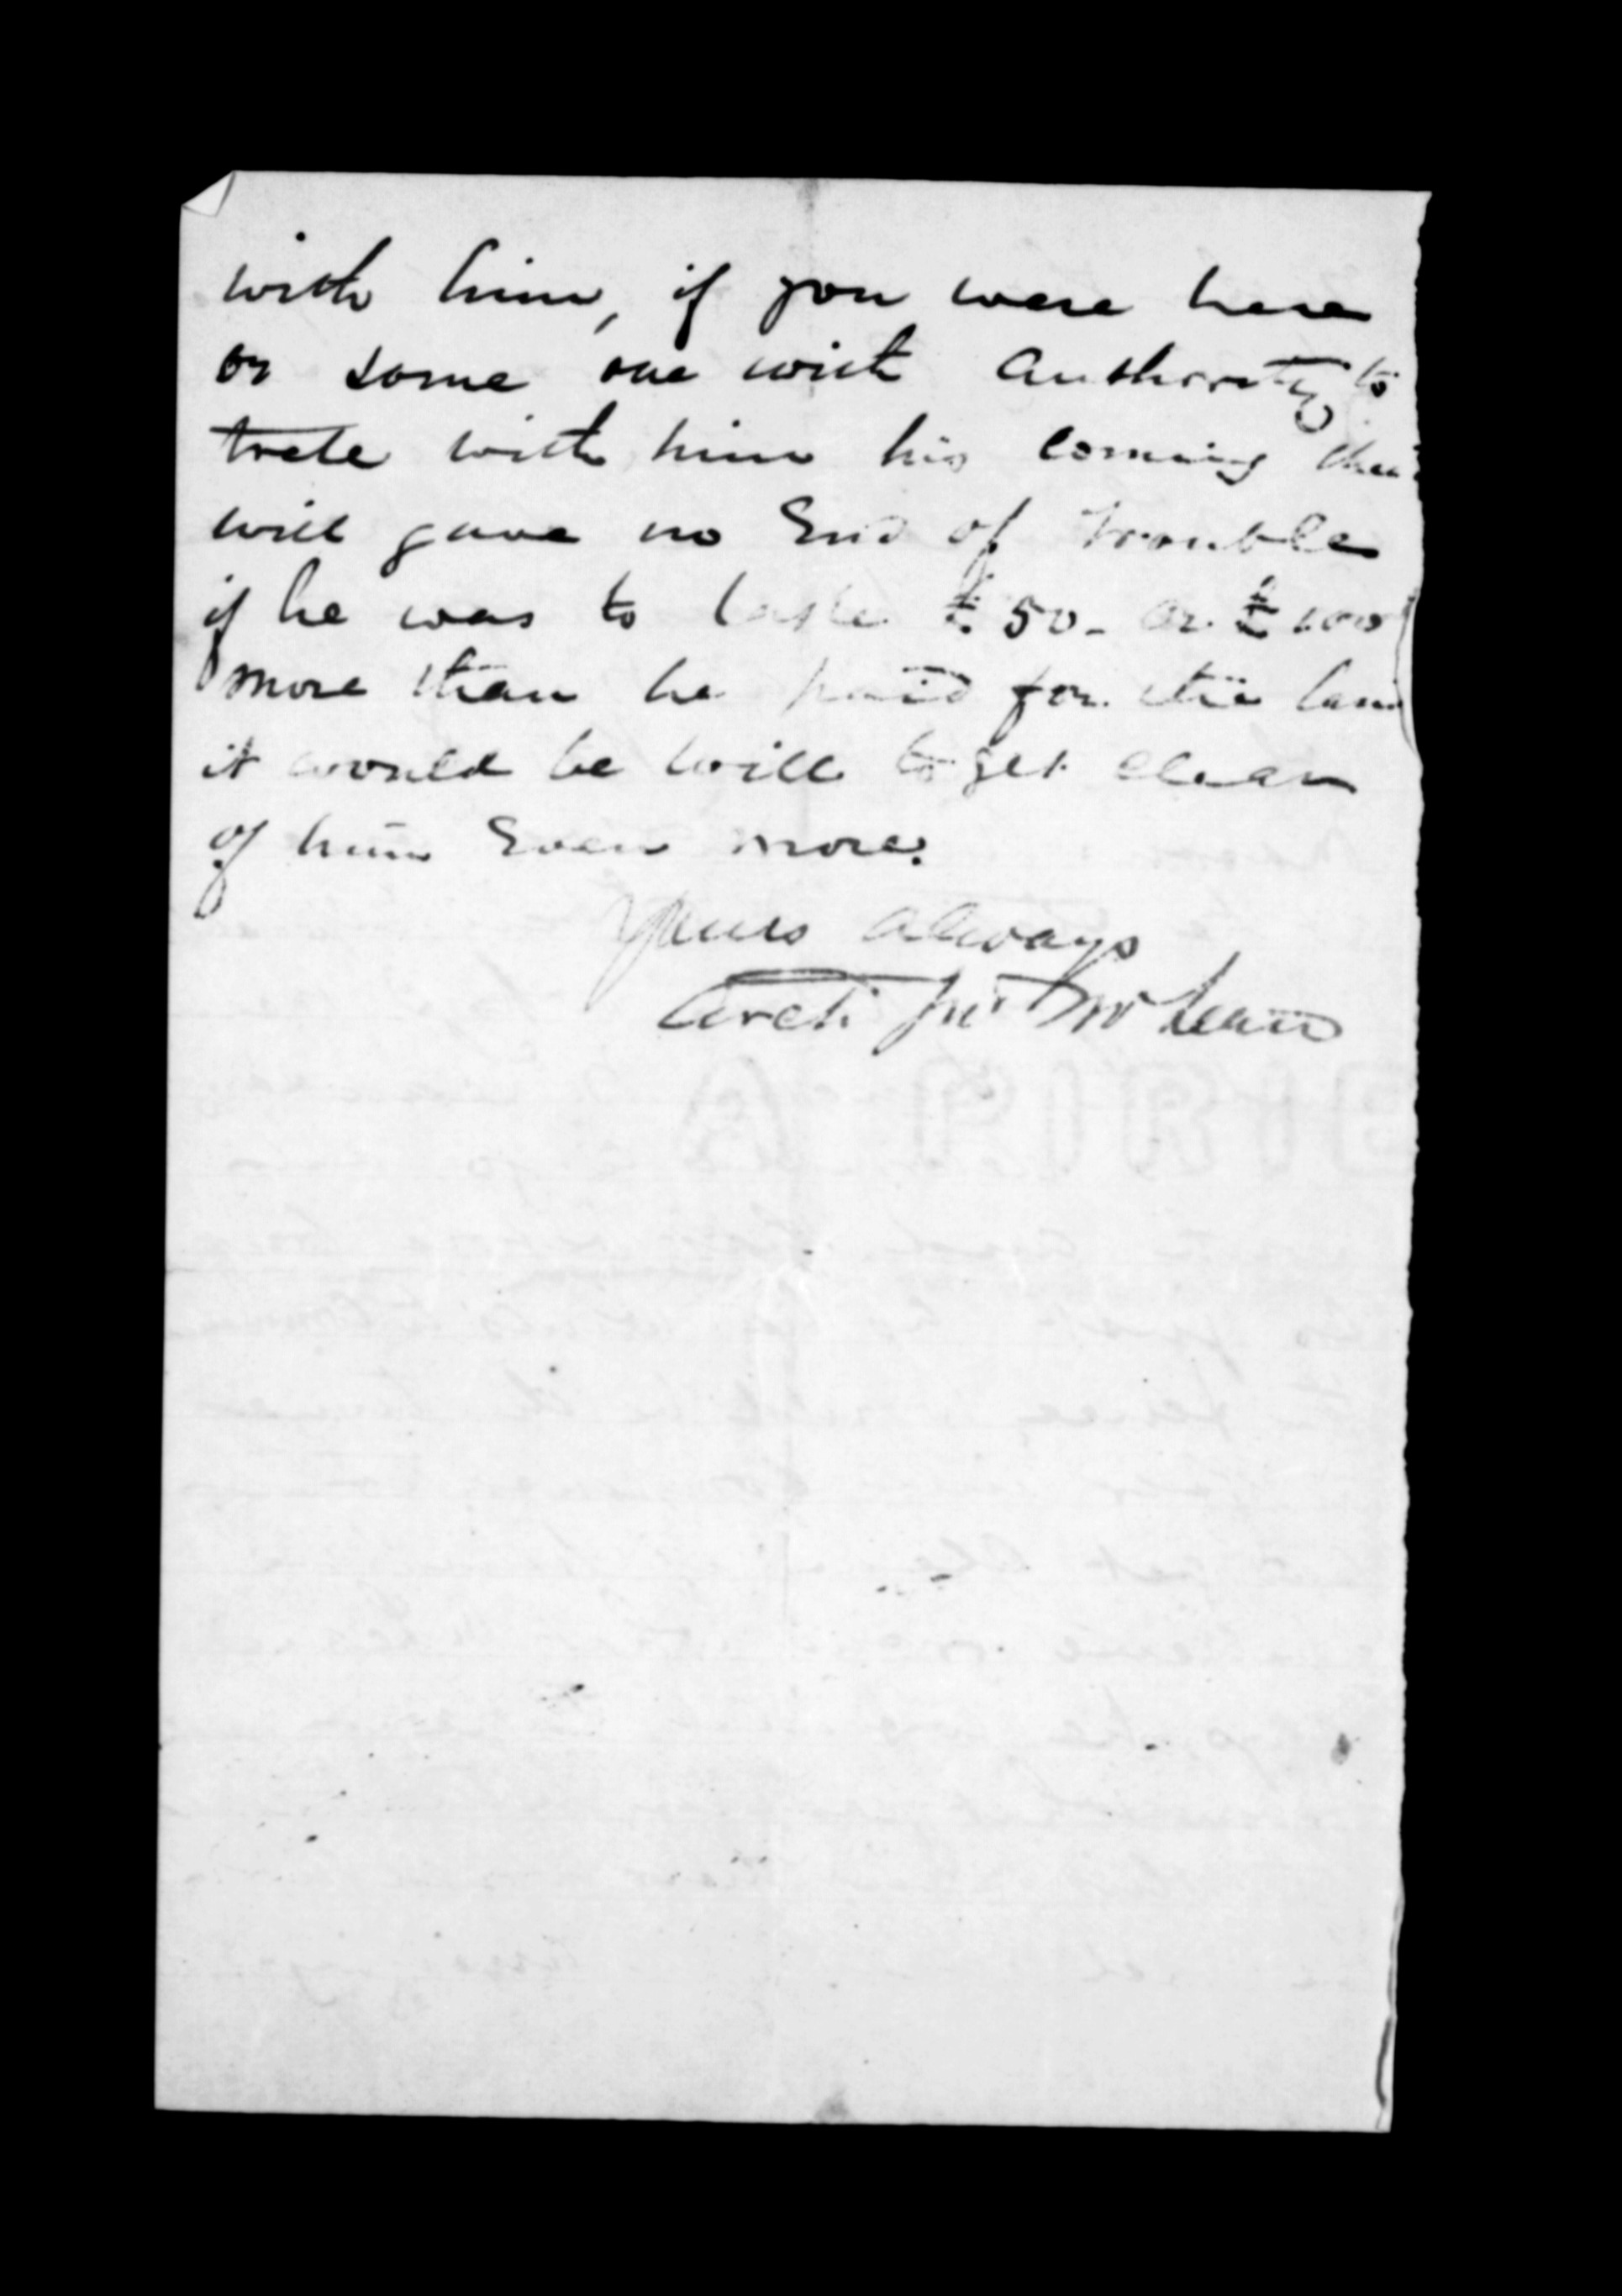 with him, if you were here
or some one with authority to
trete with him his coming
will gave no End of trouble
if he was to taske £50- or £100
more than he paid for the land
it would be will to get clear
of him Even more.
Yours always
Archd Jno McLean